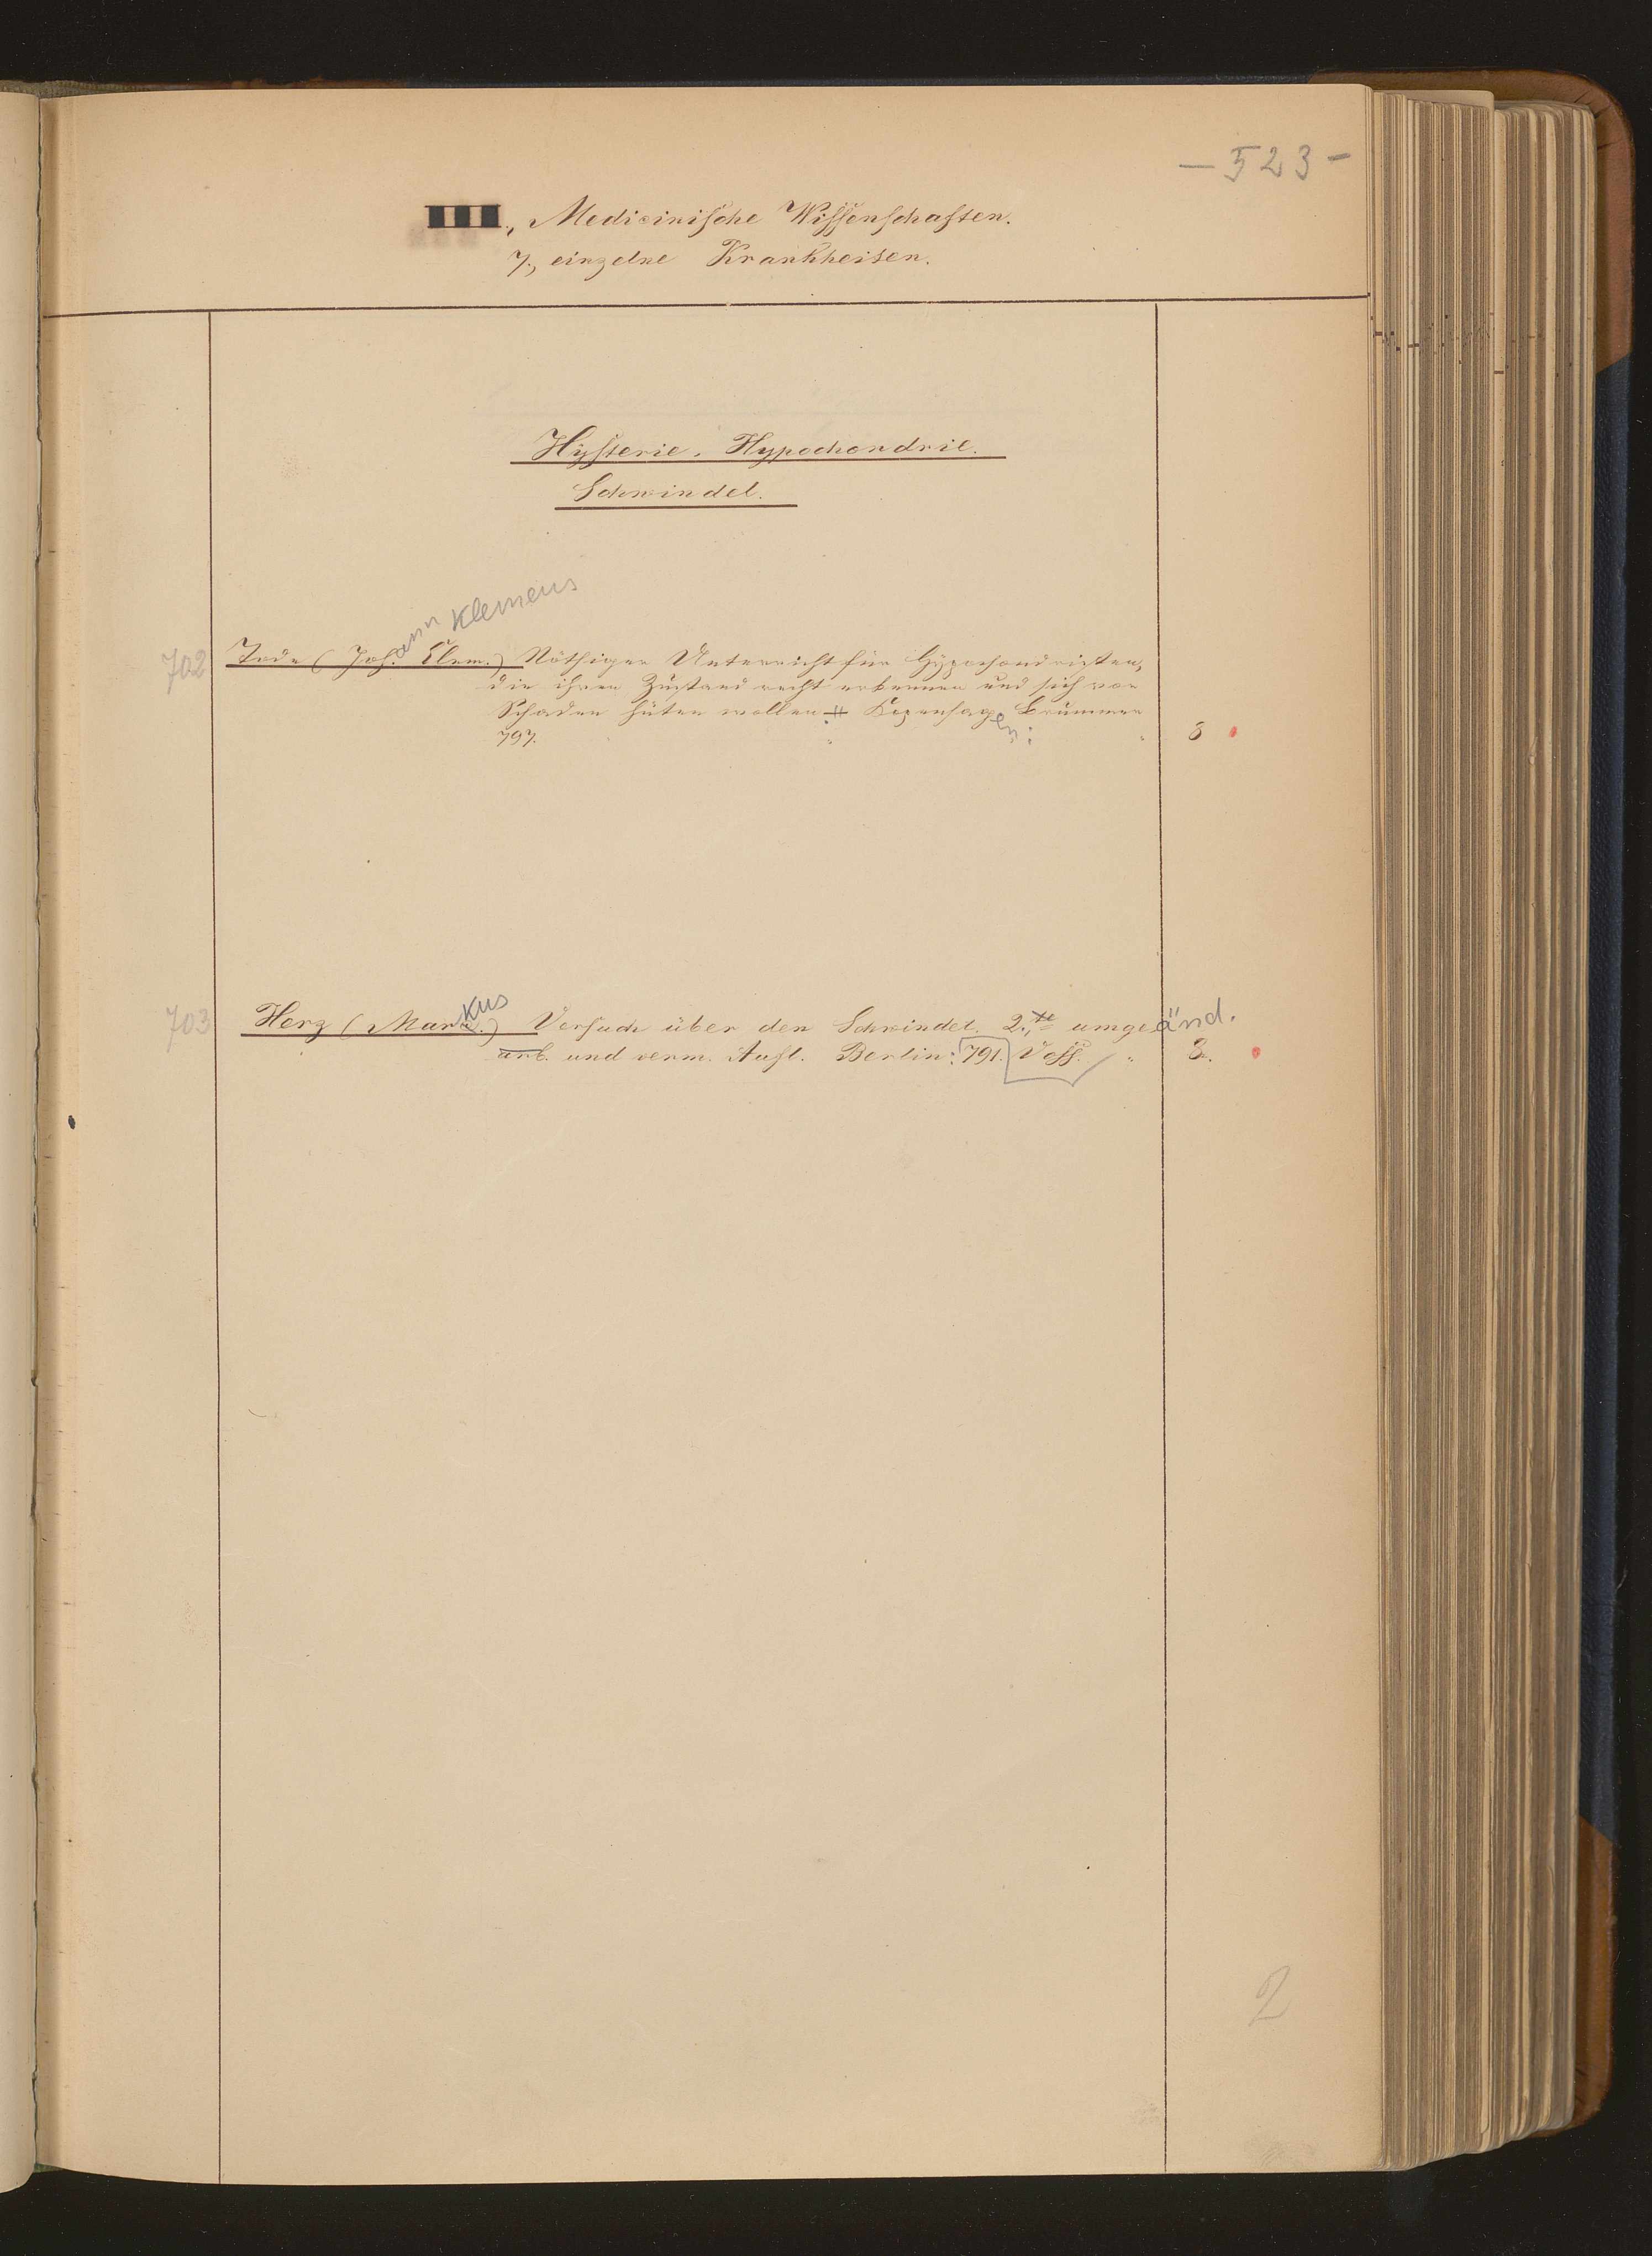 — 523 —
III., Medicinische Wissenschaften.
7., einzelne Krankheiten.
Hysterie. Hypochondrie.
Schwindel.
ann Klemens
702 Tode (Joh. Clem.) Nöthiger Unterricht für Hypochondristen,
die ihren Zustand recht erkennen und sich vor
Schaden hüten wollen. # Kopenhagen: Brummer
797. 8
703 Herz (Markus) Versuch über den Schwindel. 2.te umgeänd.
arb. und verm. Aufl. Berlin: 791. Voss. 8.
2